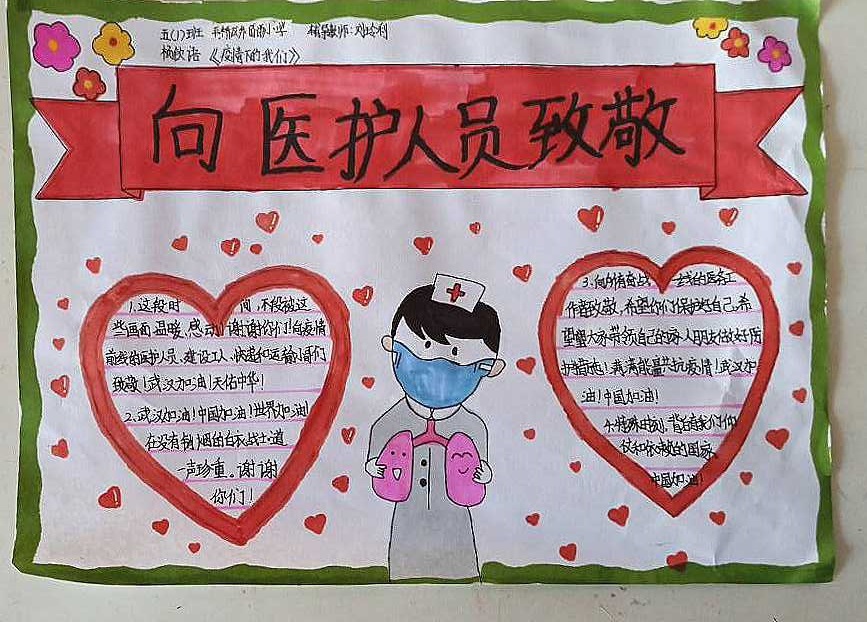 五(1)班 小学 辅导教师:刘玲利
杨欣语 《疫情下的我们》
向医护人员致敬
1.这段时 间,不段被这
些画面温暖、感动!谢谢你们!向疫情
前线的医护人员、建设工人、快递和运输小哥们
致敬!武汉加油!天佑中华!
2.武汉加油!中国加油!世界加油!
在没有硝烟的白衣战士道
一声珍重。谢谢
你们!
3.向所有奋战 一线的医务工
作者致敬,希望你们保护好自己。希
望望大家带领自己的家人朋友做好防
护措施!我满能量共抗疫情!武汉加
油!中国加油!
4.特殊时刻,背后有我们仰
仗和依赖的国家
中国加油!